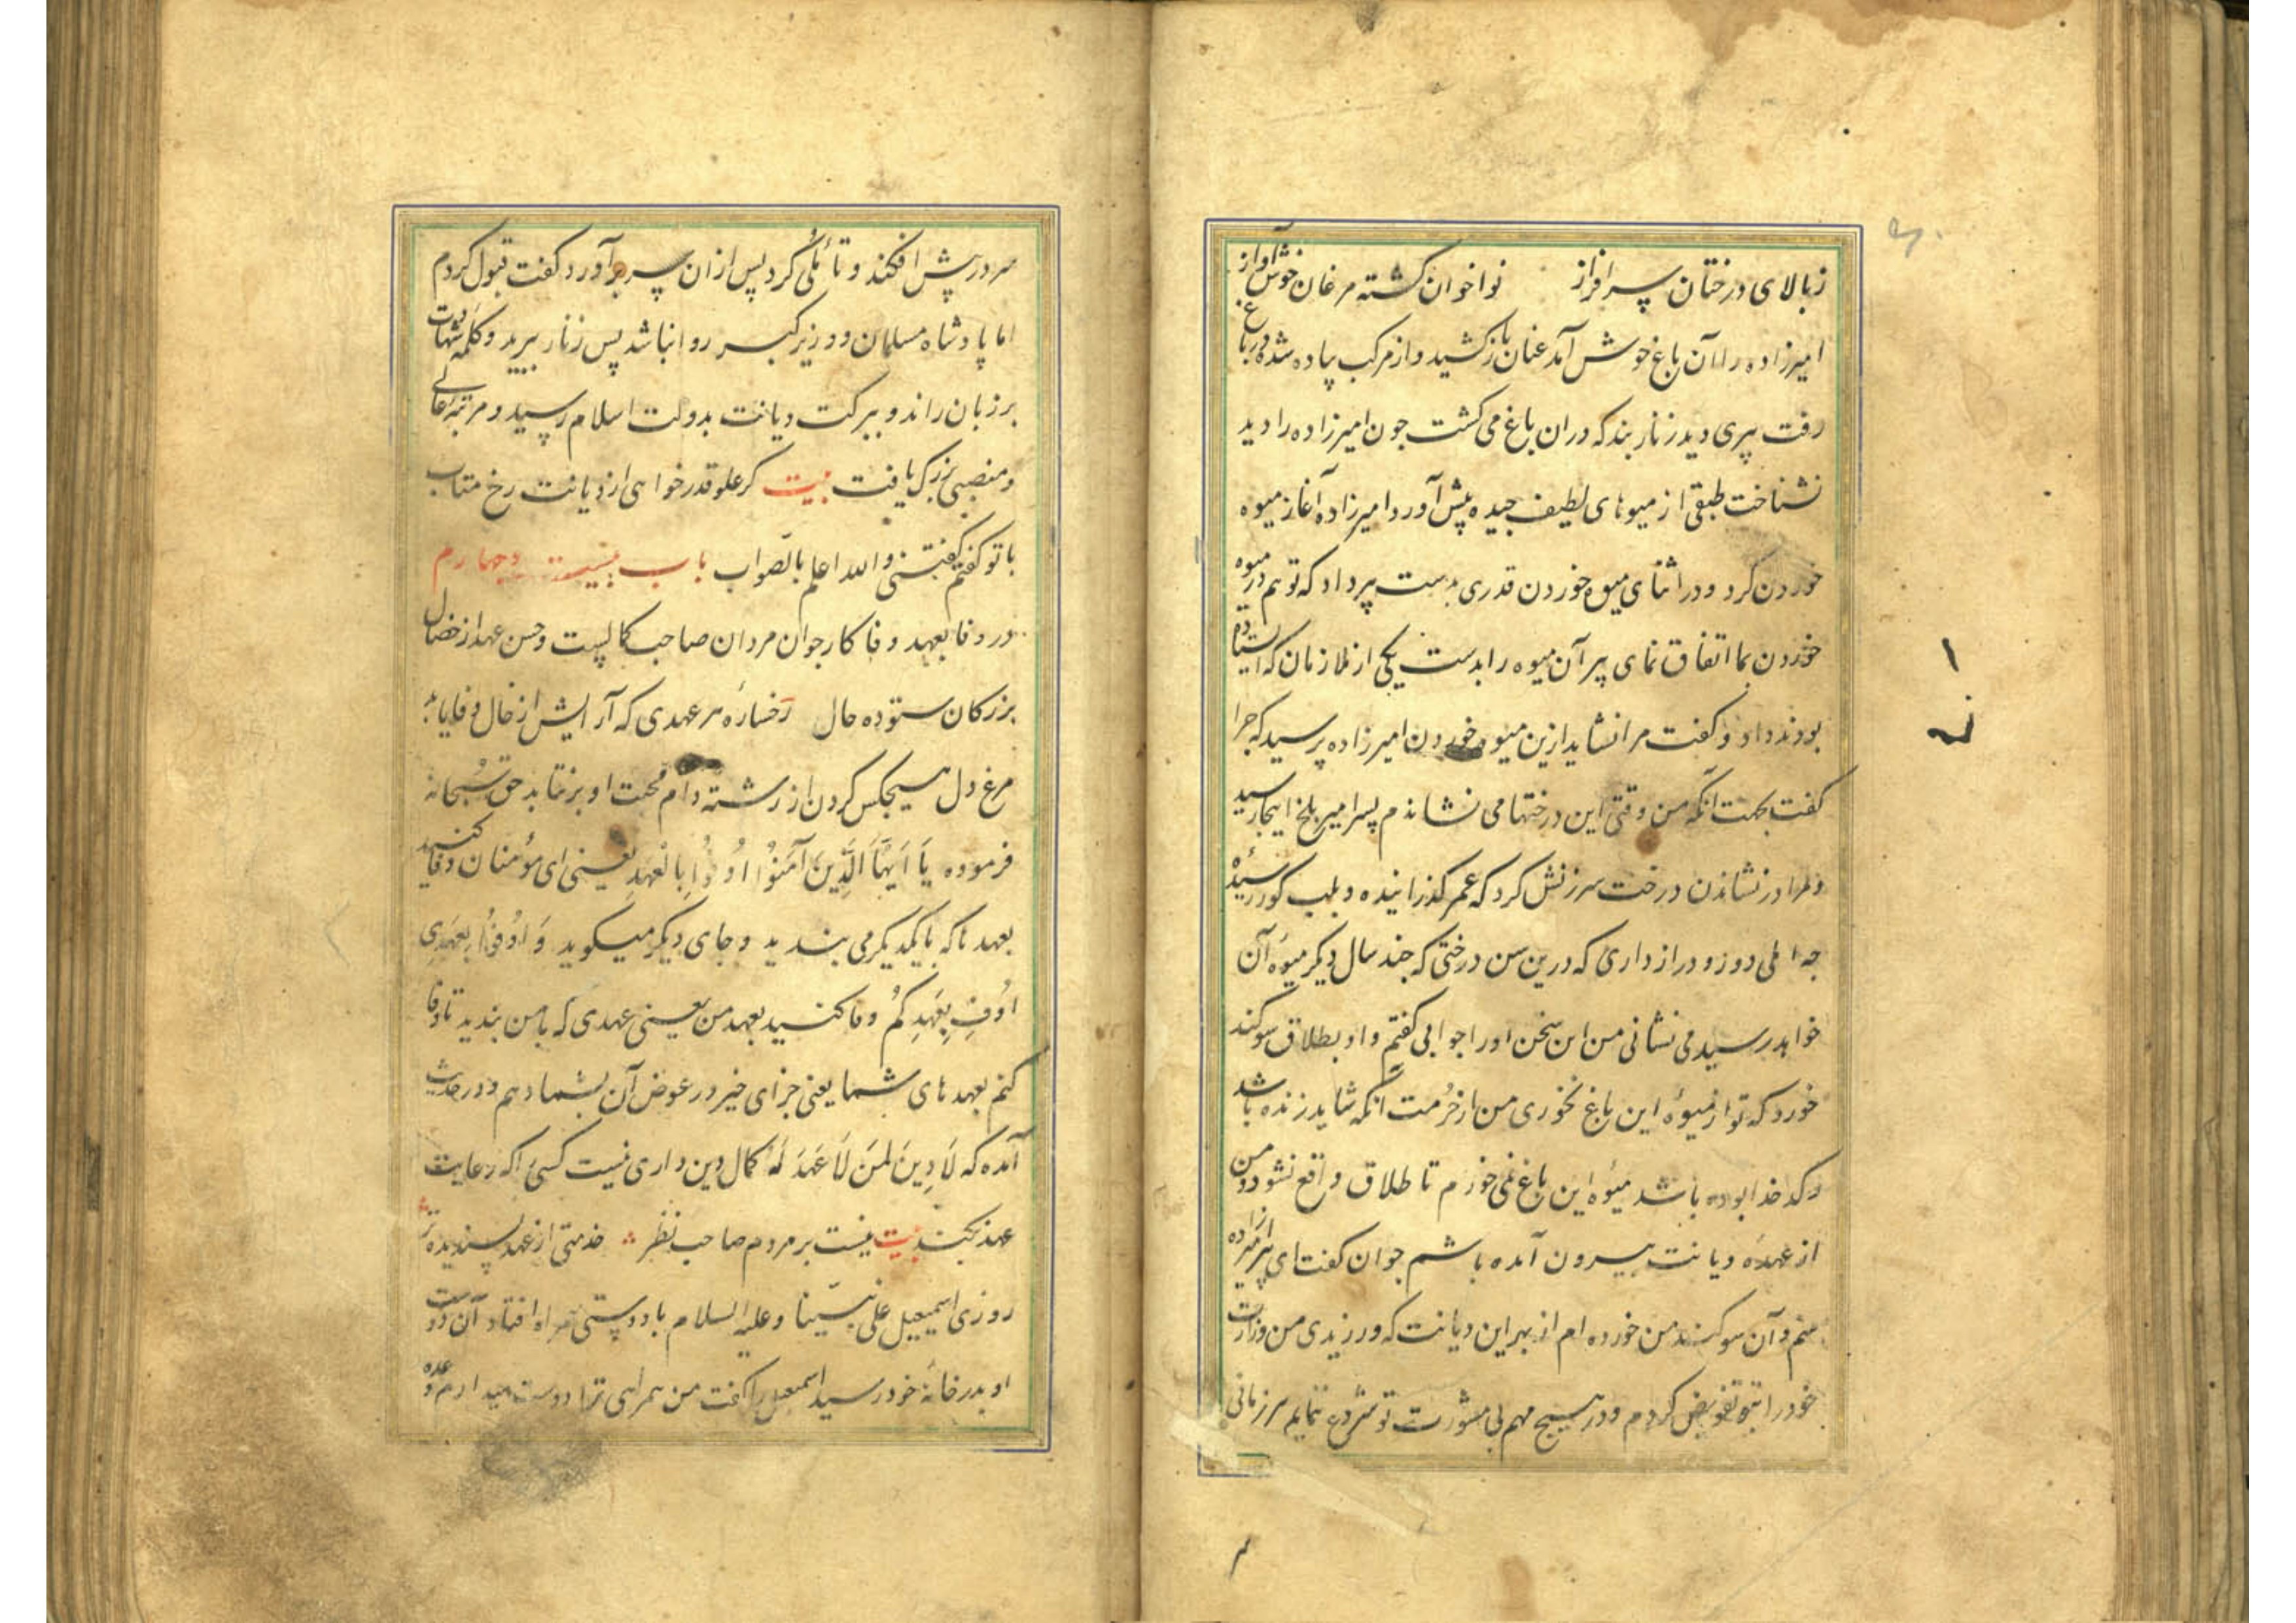 زبالای درختان سرافراز نواخوان کشته مرغان خوش‌آواز
امیرزاده را آن باغ خوش آمد عنان بازکشید و از مرکب پیاده شده در باغ
رفت پیری دید زنار بند که دران باغ می کشت جون امیرزاده را دید
نشناخت طبقی از میوهای لطیف جیده پیش آورد امیرزاده آغاز میوه
خوردن کرد و در اثنای میوه خوردن قدری بدست پیر داد که تو هم در میوه
خوردن بما اتفاق نمای پیر آن میوه را بدست یکی از ملازمان که ایستاده
بودند داد و کفت مرا نشاید ازین میوه خوردن امیرزاده پرسید که جرا
کفت بجهت آنکه من وقتی این درختها می نشاندم پسر امیر بلخ اینجا رسید
و مرا در نشاندن درخت سرزنش کرد که عمر کذرانیده و بلب کور رسیده
جه املی دور و دراز داری که درین سن درختی که جند سال دیکر میوه آن
خواهد رسید می نشانی من این سخن او را جوابی کفتم و او بطلاق سوکند
خورد که تو از میوه این باغ نخوری من از حرمت آنکه شاید زنده باشد
و کدخدا بوده باشد میوه این باغ نمی خورم تا طلاق واقع نشود و من
از عهده دیانت بیرون آمده باشم جوان کفت ای پیر امیرزاده
منم و آن سوکند من خورده ام از بهر این دیانت که ورزیدی من وزارت
خود را بتو تفویض کردم و در هیچ مهم بی مشورت تو شروع ننمایم پیر زمانی
سر در پیش افکند و تأملی کرد پس ازان سر برآورد کفت قبول کردم
اما پادشاه مسلمان و وزیر کبر روا نباشد پس زنار ببرید و کلمه شهادت
بر زبان راند و ببرکت دیانت بدولت اسلام رسید و مرتبه عالی
و منصبی بزرک یافت بیت کر علو قدر خواهی از دیانت رخ متاب
با تو کفتم کفتنی والله اعلم بالصواب باب بیست و جهارم
در وفا بعهد وفا کار جوان مردان صاحب کمالست و حسن عهد از خصال
بزرکان ستوده حال رخساره هر عهدی که آرایش از خال وفا یابد
مرغ دل هیجکس کردن از رشته دام محبت او برنتابد حق سبحانه
فرموده یَا اَیُّهَا الَّذِینَ آمَنُوا اَوْفُوا بِالْعَهْدِ یعنی ای مؤمنان وفا کنید
بعهدها که با یکدیکر می بندید و جای دیکر میکوید وَ اَوْفُوا بِعَهْدِی
اُوفِ بِعَهْدِکُمْ وفا کنید بعهد من یعنی عهدی که با من بندید تا وفا
کنم بعهدهای شما یعنی جزای خیر در عوض آن بشما دهم و در حدیث
آمده که لَا دِینَ لِمَنْ لَا عَهْدَ لَهُ کمال دین داری نیست کسی را که رعایت
عهد نکند بیت نیست بر مردم صاحب نظر خدمتی از عهد پسندیده تر
روزی اسمعیل علی نبینا و علیه السلام با دوستی همراه افتاد آن دوست
او بدر خانه خود رسید اسمعیل را کفت من همراهی ترا دوست میدارم وعده